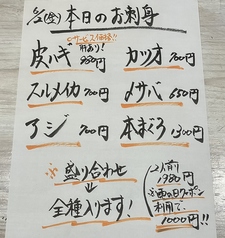 6/2(金) 本日のお刺身
サービス価格!!
皮ハギ 肝あり! 980円
カツオ 700円
スルメイカ 700円
〆サバ 650円
アジ 700円
本まぐろ 1300円
盛り合わせ
全種入ります!
2人前
1980円
雨の日クーポン
利用で、
1000円!!